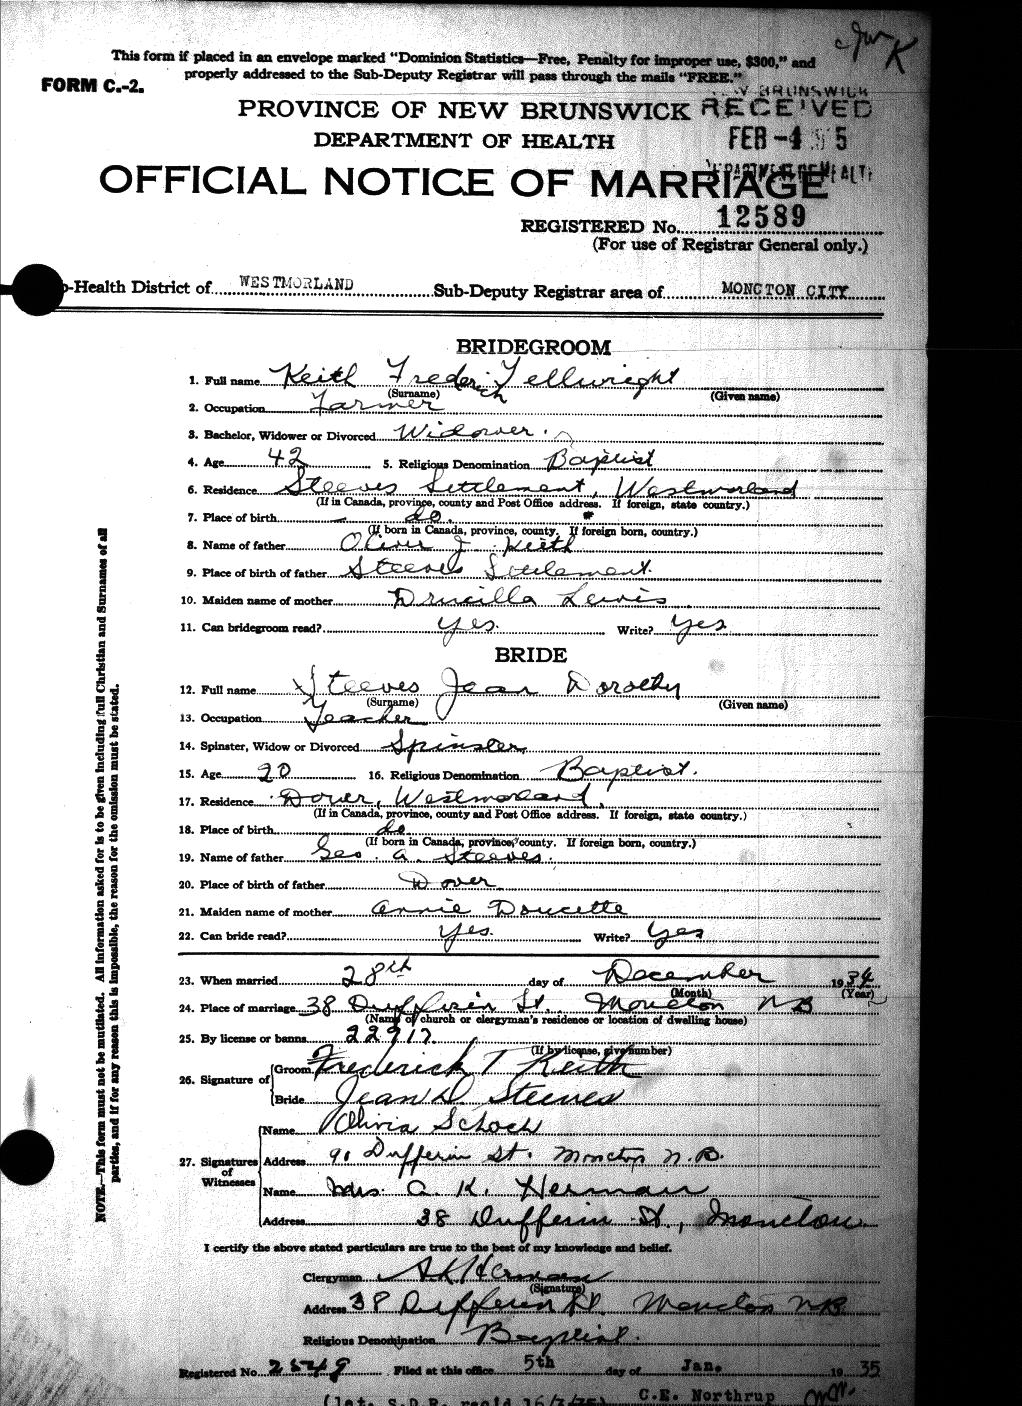 JWK
This form if placed in an envelope marked "Dominion Statistics—Free, Penalty for improper use, $300," and
properly addressed to the Sub-Deputy Registrar will pass through the mails "FREE."
FORM C.-2.
BRUNSWICK
PROVINCE OF NEW BRUNSWICK RECEIVED
DEPARTMENT OF HEALTH FEB -4
OFFICIAL NOTICE OF MARRIAGE
REGISTERED No. 12589
(For use of Registrar General only.)
-Health District of WESTMORLAND Sub-Deputy Registrar area of MONCTON CITY
BRIDEGROOM
1. Full name Keith Frederick Tellwright
(Surname) (Given name)
2. Occupation Farmer
3. Bachelor, Widower or Divorced Widower.
4. Age 42 5. Religious Denomination Baptist
6. Residence Steeves Settlement, Westmorland
(If in Canada, province, county and Post Office address. If foreign, state country.)
7. Place of birth do.
(If born in Canada, province, county. If foreign born, country.)
8. Name of father Oliver J. Keith
9. Place of birth of father Steeves Settlement.
10. Maiden name of mother Drucilla Lewis
11. Can bridegroom read? Yes. Write? Yes
BRIDE
12. Full name Steeves Jean Dorothy
(Surname) (Given name)
13. Occupation Teacher
14. Spinster, Widow or Divorced Spinster
15. Age 20 16. Religious Denomination Baptist.
17. Residence Dover, Westmorland,
(If in Canada, province, county and Post Office address. If foreign, state country.)
18. Place of birth do
(If born in Canada, province, county. If foreign born, country.)
19. Name of father Geo. A. Steeves.
20. Place of birth of father Dover
21. Maiden name of mother Annie Doucette
22. Can bride read? Yes. Write? Yes
23. When married 28th day of December 1934
(Month) (Year)
24. Place of marriage 38 Dufferin St. Moncton NB
(Name of church or clergyman's residence or location of dwelling house)
25. By license or banns 22917.
(If by license, give number)
26. Signature of Groom Frederick T Keith
Bride Jean D. Steeves
27. Signatures of Witnesses
Name Olivia Schoch
Address 91 Dufferin St. Moncton N.B.
Name Mrs. A. K. Herman
Address 38 Dufferin St., Moncton
I certify the above stated particulars are true to the best of my knowledge and belief.
Clergyman A K Herman
(Signature)
Address 38 Dufferin St. Moncton NB
Religious Denomination Baptist.
Registered No. 2549 Filed at this office 5th day of Jan. 1935
C.E. Northrup
NOTE.—This form must not be mutilated. All information asked for is to be given including full Christian and Surnames of all
parties, and if for any reason this is impossible, the reason for the omission must be stated.